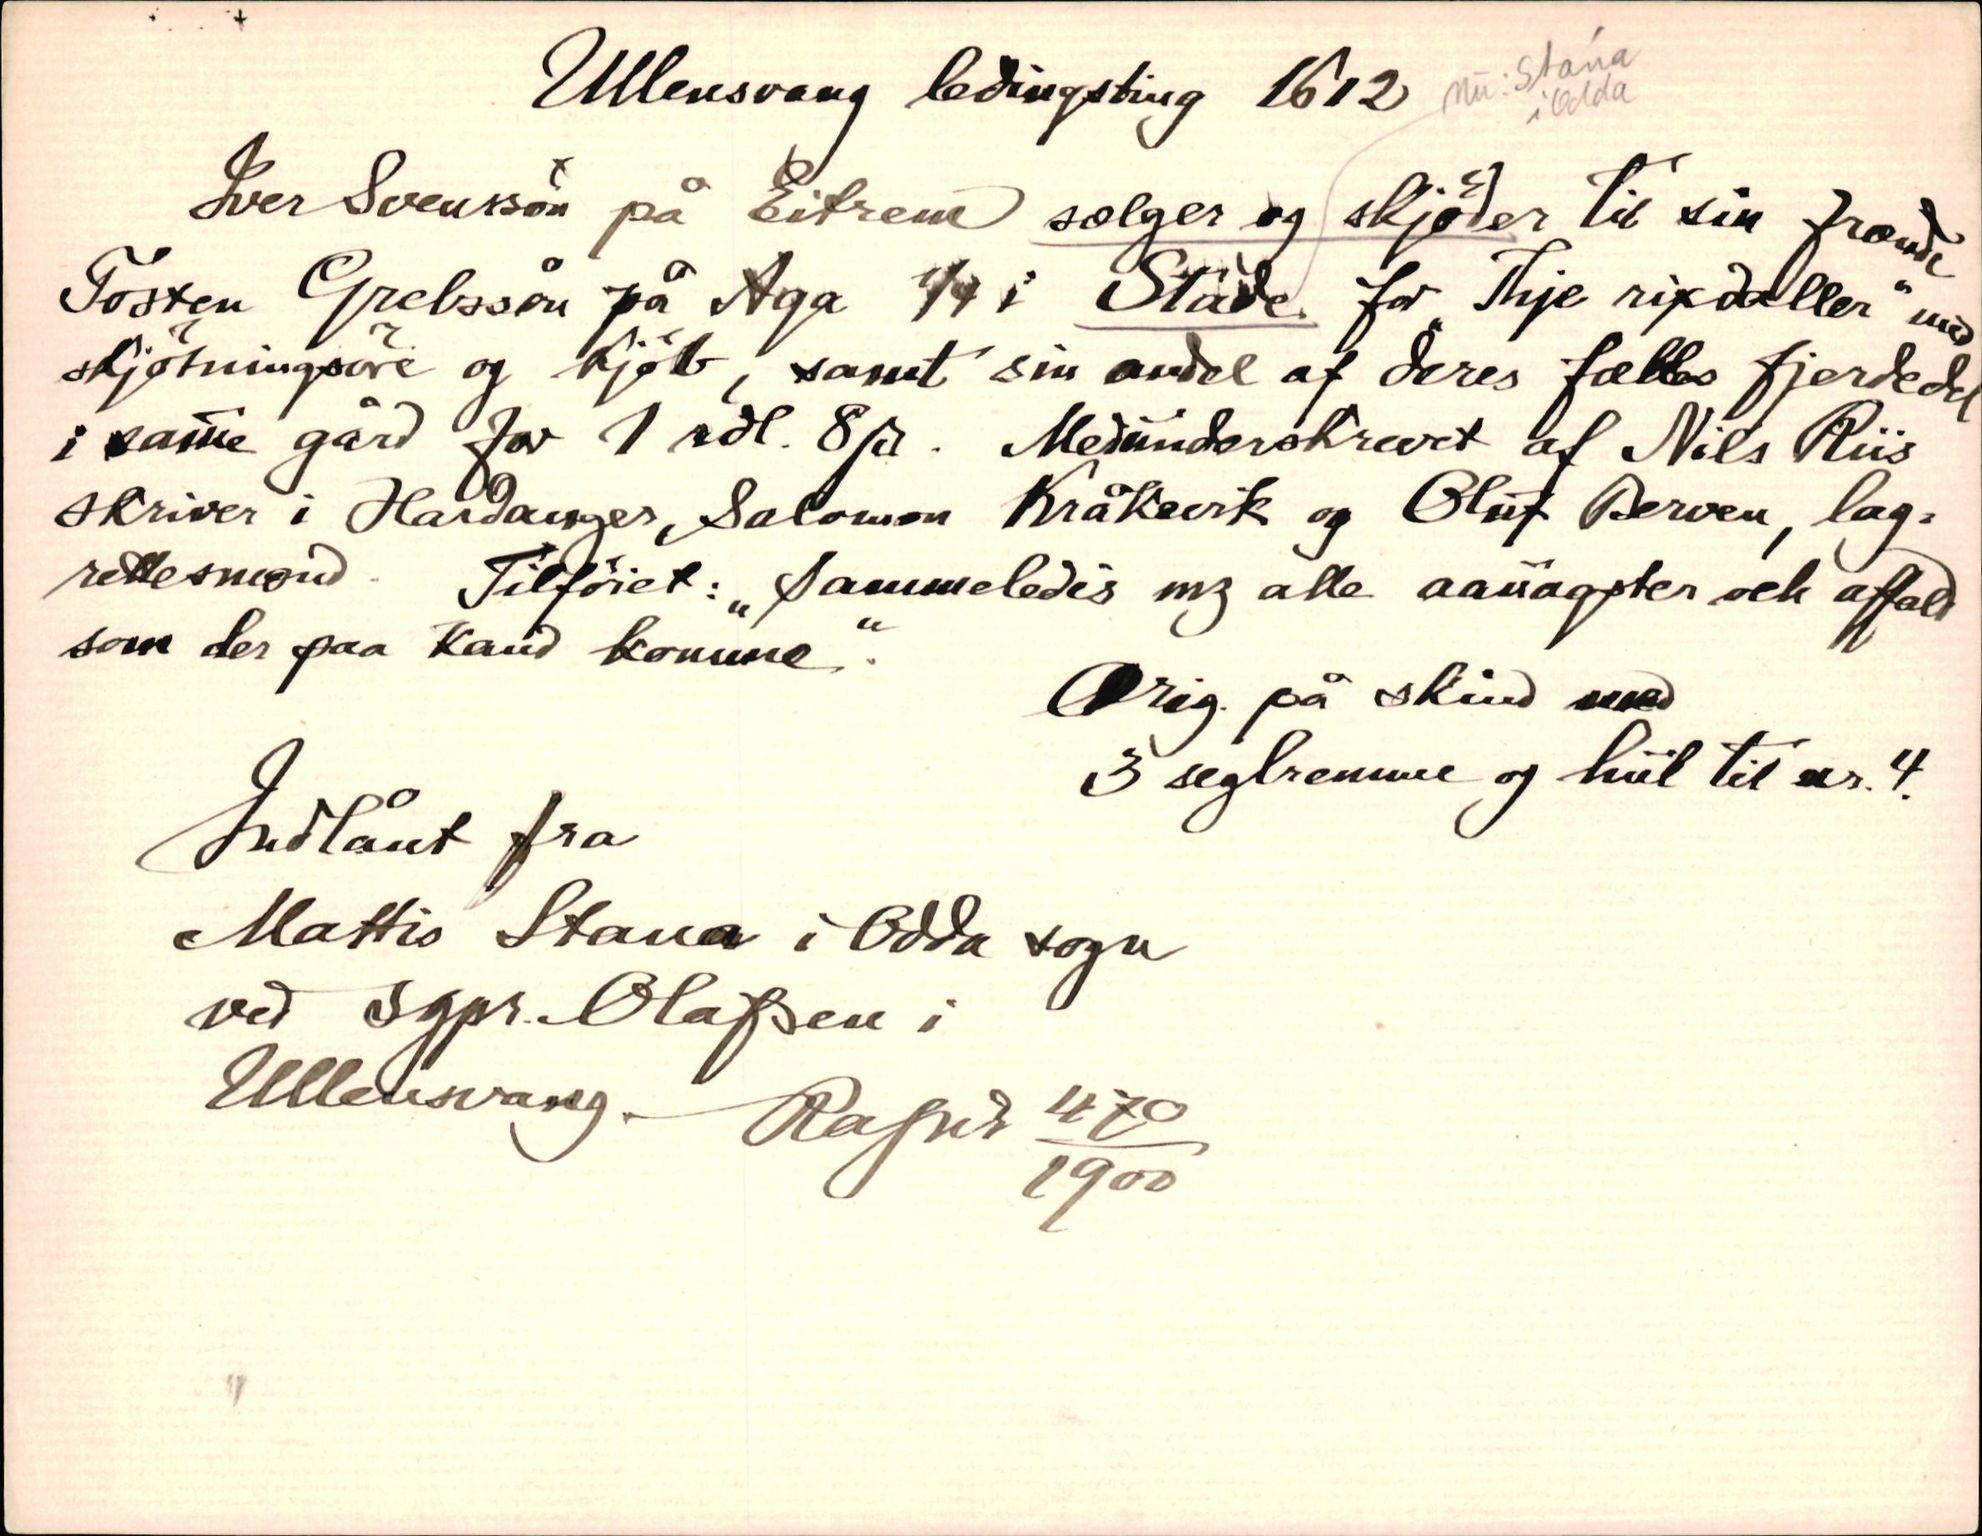 Ullensvang ledingsting 1612
nu: Stana
i Odda
Iver Svenssøn på Eitrem sælger og skjøder til sin frænde
Tosten Grebssøn på Aga 1/4 i Stade for "Thje rixdaller" med
skjøtningsøre og kjøb, samt sin andel af deres fælles fjerdedel
i same gård for 1 rdl. 8 β. Medunderskrevet af Nils Riis
skriver i Hardanger, Salomon Kråkevik og Oluf Berven, lag-
rettesmænd. Tilføiet: "Sammeledis mz alle aauagster och affald
som der paa kand komme".
Orig. på skind med
3 seglremme og hul til nr. 4.
Indlånt fra
Mattis Stana i Odda sogn
ved sgpr. Olafsen i
Ullensvang. 470
1900